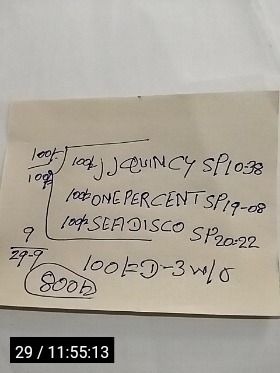 100/- 100/- JJ QUINCY SP10-38
100/- 100/- ONEPERCENT SP19-08
100/- SEADISCO SP20-22
9
29-9
100/-=D-3 w/o
800/-
29 / 11:55:13